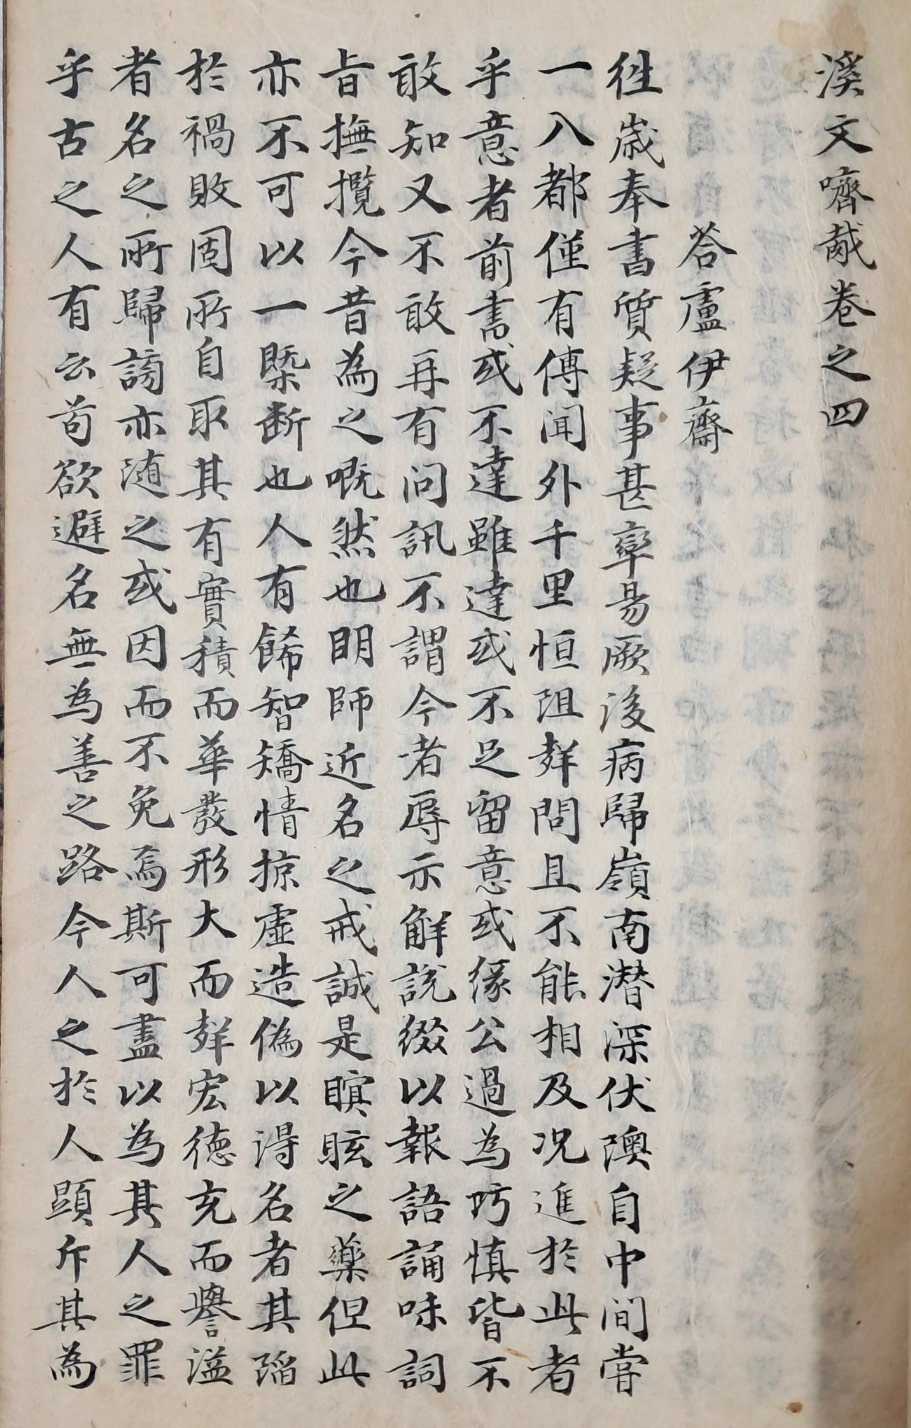 溪文嚌胾卷之四
荅盧伊齋
徃歲奉書質疑事甚率易厥後病歸嶺南潜深伏隩自中间甞
一入都僅有傳聞外千里恒阻聲問且不能相及况進於此者
乎意者前書或不達雖達或不足留意或緣公過為巧慎皆不
敢知又不敢再有问訊不謂今者辱示解說綴以報語誦味詞
旨撫攬今昔為之嘅然也明師近名之戒誠是瞑眩之藥但此
亦不可以一槩断也人有餙智矯情掠虛造偽以淂名者其陷
於禍敗固所自取其有實積而華發形大而聲宏徳充而譽溢
者名之所歸謗亦随之或因而不免焉斯可盡以為其人之罪
乎古之人有云苟欲避名無為善之路今人之於人顯斥其為